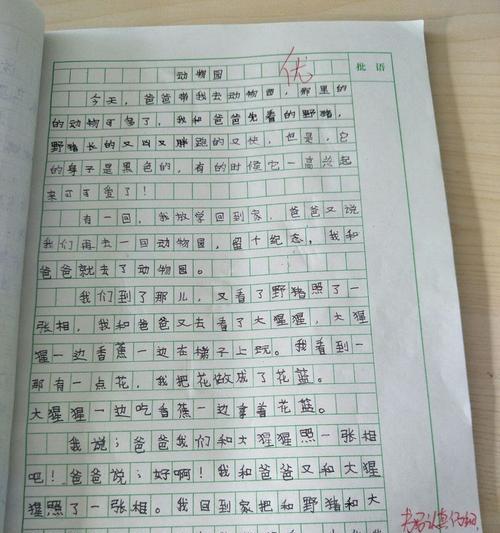 批语
优
动物园
今天，爸爸带我去动物园，那里的
的动物可多了，我和爸爸先看的野猪，
野猪长的又凶又胖跑的又快，但是，它
的身子是黑色的，有的时候它一高兴起
来可可爱了！
有一回，我放学回到家，爸爸又说
我们再去一回动物园，留个纪念，我和
爸爸就去了动物园。
我们到了那儿，又看了野猪照了一
张相，我和爸爸又去看了大猩猩，大猩
猩一边香蕉一边在梯子上玩。我看到一
那有一点花，我把花做成了花蓝。
大猩猩一边吃香蕉一边拿着花蓝。
我说：爸爸我们和大猩猩照一张相
吧！爸爸说：好啊！我和爸爸又和大猩
猩照了一张相。我回到家把和野猪和大
书写认真仔细